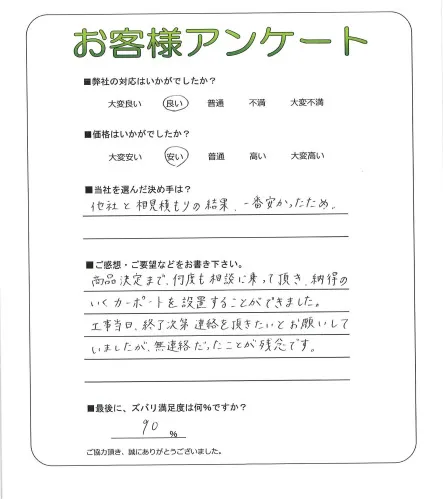 お客様アンケート
■弊社の対応はいかがでしたか?
大変良い 良い 普通 不満 大変不満
■価格はいかがでしたか?
大変安い 安い 普通 高い 大変高い
■当社を選んだ決め手は?
他社と相見積もりの結果、一番安かったため。
■ご感想・ご要望などをお書き下さい。
商品決定まで、何度も相談に乗って頂き、納得の
いくカーポートを設置することができました。
工事当日、終了次第連絡を頂きたいとお願いして
いましたが、無連絡だったことが残念です。
■最後に、ズバリ満足度は何%ですか?
90 %
ご協力頂き、誠にありがとうございました。